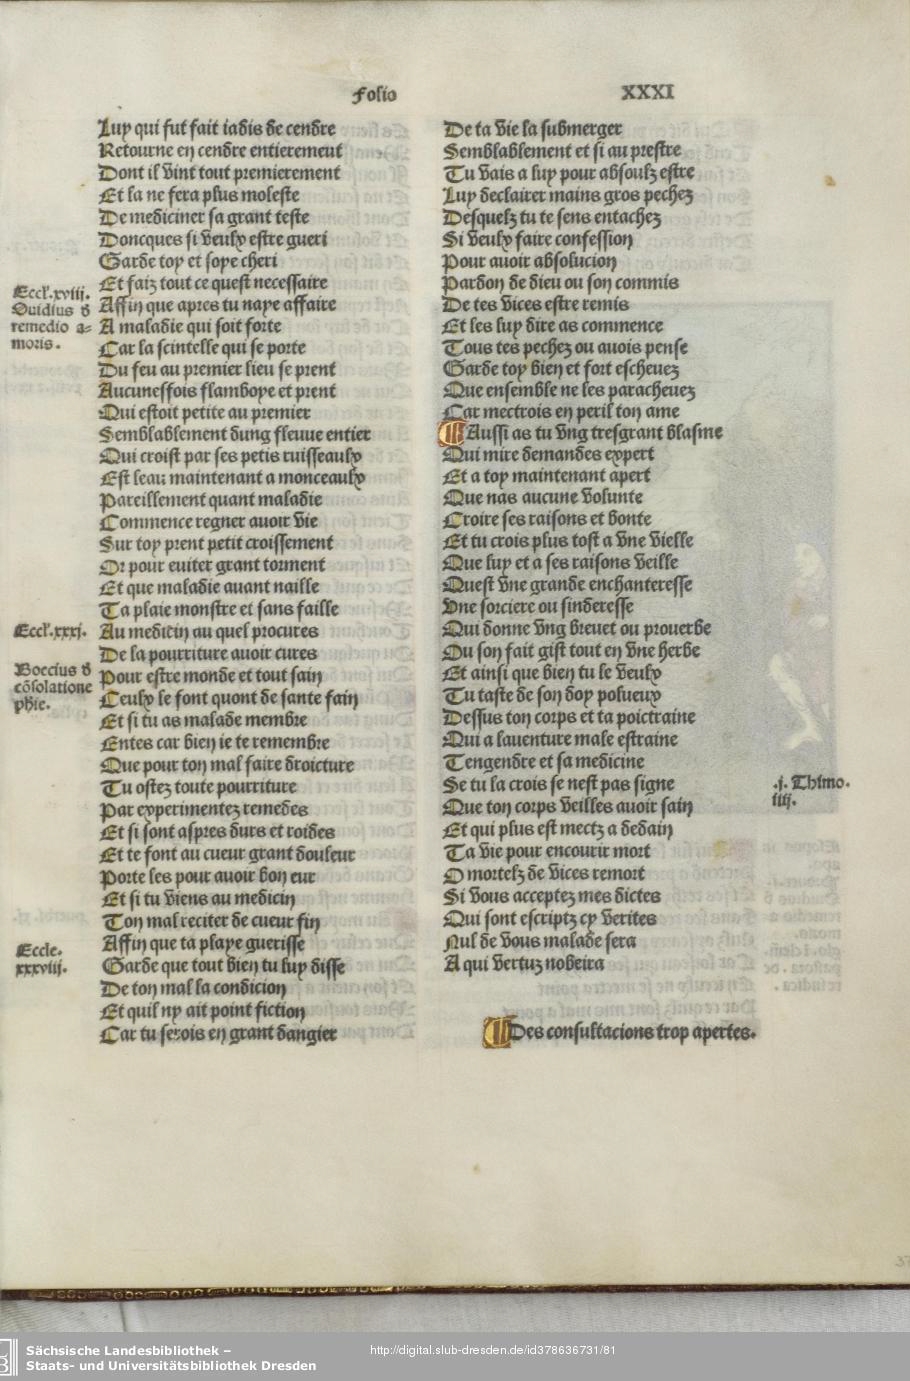 Folio XXXI
Luy qui fut fait iadis de cendre
Retourne en cendre entierement
Dont il vint tout premierement
Et la ne fera plus moleste
De mediciner sa grant teste
Doncques si veulx estre gueri
Garde toy et soye cheri
Et faiz tout ce quest necessaire
Affin que apres tu naye affaire
A maladie qui soit forte
Car la scintelle qui se porte
Du feu au premier lieu se prent
Aucuneffois flamboye et prent
Qui estoit petite au premier
Semblablement dung fleuue entier
Qui croist par ses petis ruisseaulx
Est leau maintenant a monceaulx
Pareillement quant maladie
Commence regner auoir vie
Sur toy prent petit croissement
Or pour euiter grant torment
Et que maladie auant naille
Ta plaie monstre et sans faille
Au medicin au quel procures
De la pourriture auoir cures
Pour estre monde et tout sain
Ceulx le font quont de sante fain
Et si tu as malade membre
Entes car bien ie te remembre
Que pour ton mal faire droicture
Tu ostez toute pourriture
Par experimentez remedes
Et si sont aspres durs et roides
Et te font au cueur grant douleur
Porte les pour auoir bon eur
Et si tu viens au medicin
Ton mal reciter de cueur fin
Affin que ta playe guerisse
Garde que tout bien tu luy disse
De ton mal la condicion
Et quil ny ait point fiction
Car tu serois en grant dangier
Eccl'. xviij.
Ouidius d
remedio a=
moris.
Eccl'. xxxj.
Boecius d
cõsolatione
phie.
Eccle.
xxxviij.
De ta vie la submerger
Semblablement et si au prestre
Tu vais a luy pour absoulz estre
Luy declairer mains gros pechez
Desquelz tu te sens entachez
Si veulx faire confession
Pour auoir absolucion
Pardon de dieu ou son commis
De tes vices estre remis
Et les luy dire as commence
Tous tes pechez ou auois pense
Garde toy bien et fort escheuez
Que ensemble ne les paracheuez
Car mectrois en peril ton ame
Aussi as tu vng tresgrant blasme
Qui mire demandes expert
Et a toy maintenant apert
Que nas aucune volunte
Croire ses raisons et bonte
Et tu crois plus tost a vne vielle
Que luy et a ses raisons veille
Quest vne grande enchanteresse
Vne sorciere ou sinderesse
Qui donne vng breuet ou prouerbe
Ou son fait gist tout en vne herbe
Et ainsi que bien tu le veulx
Tu taste de son doy polueux
Dessus ton corps et ta poictraine
Qui a lauenture male estraine
Tengendre et sa medicine
Se tu la crois se nest pas signe
Que ton corps veilles auoir sain
Et qui plus est mectz a dedain
Ta vie pour encourir mort
O mortelz de vices remort
Si vous acceptez mes dictes
Qui sont escriptz cy verites
Nul de vous malade sera
A qui vertuz nobeira
.j. Thimo.
iiij.
Des consultacions trop apertes.
Sächsische Landesbibliothek –
Staats- und Universitätsbibliothek Dresden
http://digital.slub-dresden.de/id378636731/81